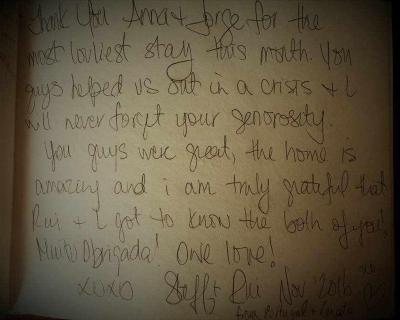 Thank You Anna + Jorge for the
most lovliest stay this month. You
guys helped us out in a crisis + I
will never forget your generosity.
You guys were great, the home is
amazing and i am truly grateful that
Rui + I got to know the both of you!
Muito Obrigada! One love!
xoxo Steff + Rui Nov 2016
from Portugal +